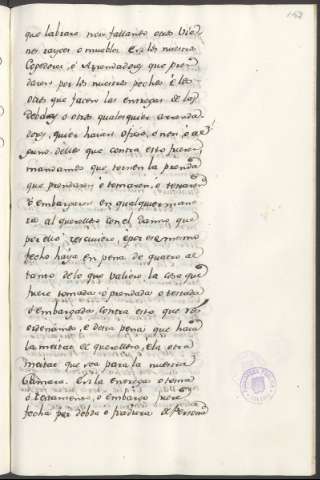 que labrare non fallando otros vie-
nes rayces o muebles. En los nuestros
Cogedores, é Arrendadores que pren-
daren por los nuestros pechos é los
otros que facen las entregas de los
deudos o otros qualesquier arrenda-
dores, quier hayan oficio, o non, o al-
guno dellos que contra esto fueren
mandamos que tornen la prenda
que prendaron ó tomaron, o testaron
ó embargaron en qualquier mane-
ra al querelloso con el danno que
por ello rescibiere é por ese mesmo
fecho haya en pena de quatro al
tanto de lo que valiere la cosa que
fuere tomada o prendada o testada
o embargada contra esto que
ordenamos, e desta pena que haya
la meitat el querelloso, é la otra
meitat que sea para la nuestra
Cámara. En la entrega o toma
ó testamento, o embargo fuere
fecha por debda o fiadura de Persona